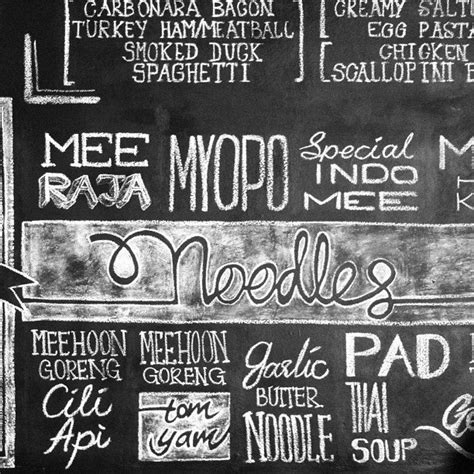 CARBONARA BACON
TURKEY HAM/MEATBALL
SMOKED DUCK
SPAGHETTI
CREAMY
EGG PASTA
CHICKEN
SCALLOPINI
MEE
RAJA
MYOPO
Special
INDO
MEE
Noodles
MEEHOON
GORENG
Cili
Api
MEEHOON
GORENG
tom
yam
garlic
BUTTER
NOODLE
PAD
THAI
SOUP